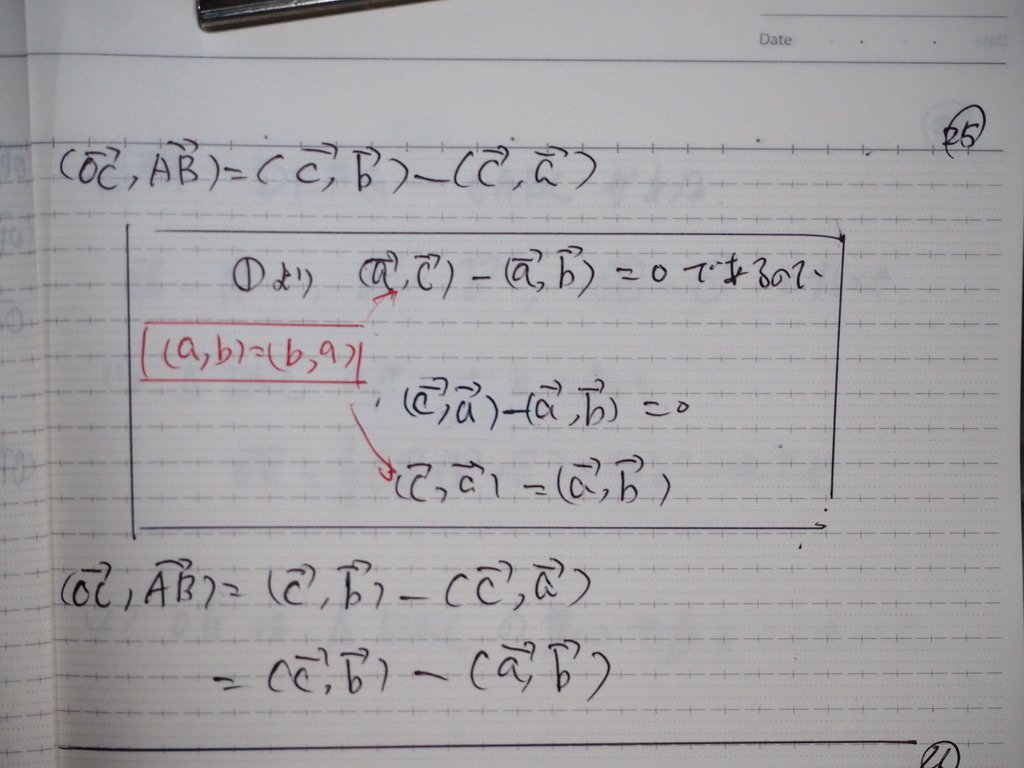 Date
25
(OC→, AB→) = (c→, b→) − (c→, a→)
①より (a→, c→) − (a→, b→) = 0 であるので
(a, b) = (b, a)
(c→, a→) − (a→, b→) = 0
(c→, a→) = (a→, b→)
(OC→, AB→) = (c→, b→) − (c→, a→)
= (c→, b→) − (a→, b→)